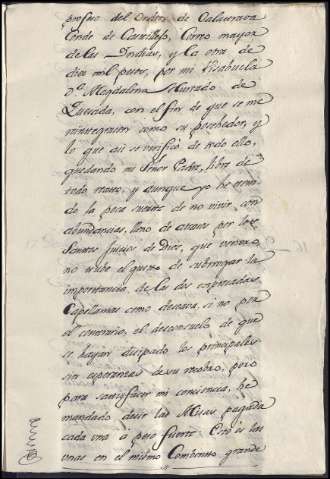 profeso del Orden de Calatrava
Conde de Castillejo, Correo mayor
de las Indias, y la otra de
dos mil pesos, por mi Visabuela
Dª Magdalena Hurtado de
Quesada, con el fin de que se me
reintegrasen como su poseedor, y
lo que asi se verificó de todo ello,
quedando mi Señor Padre, libre de
todo reato, y aunque yo he tenido
la poca suerte de no vivir con
abundancias, lleno de atrasos por los
Secretos Juicios de Dios, que venero
no tube el gusto de subrogar la
importancia, de las dos expresadas
Capellanias como deseava, si no por
el contrario, el desconsuelo de que
se hayan disipado los principales
sin esperanzas de su reobro, pero
para satisfacer mi conciencia, he
mandado decir las Misas pagada
cada una á peso fuerte. Esto es las
unas en el mismo Combento grande